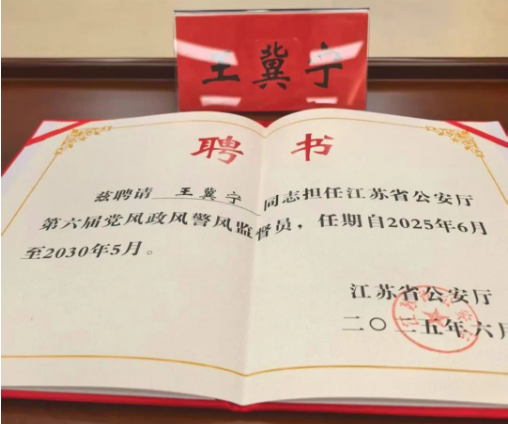 王冀宁
聘书
兹聘请 王冀宁 同志担任江苏省公安厅
第六届党风政风警风监督员，任期自2025年6月
至2030年5月。
江苏省公安厅
二〇二五年六月